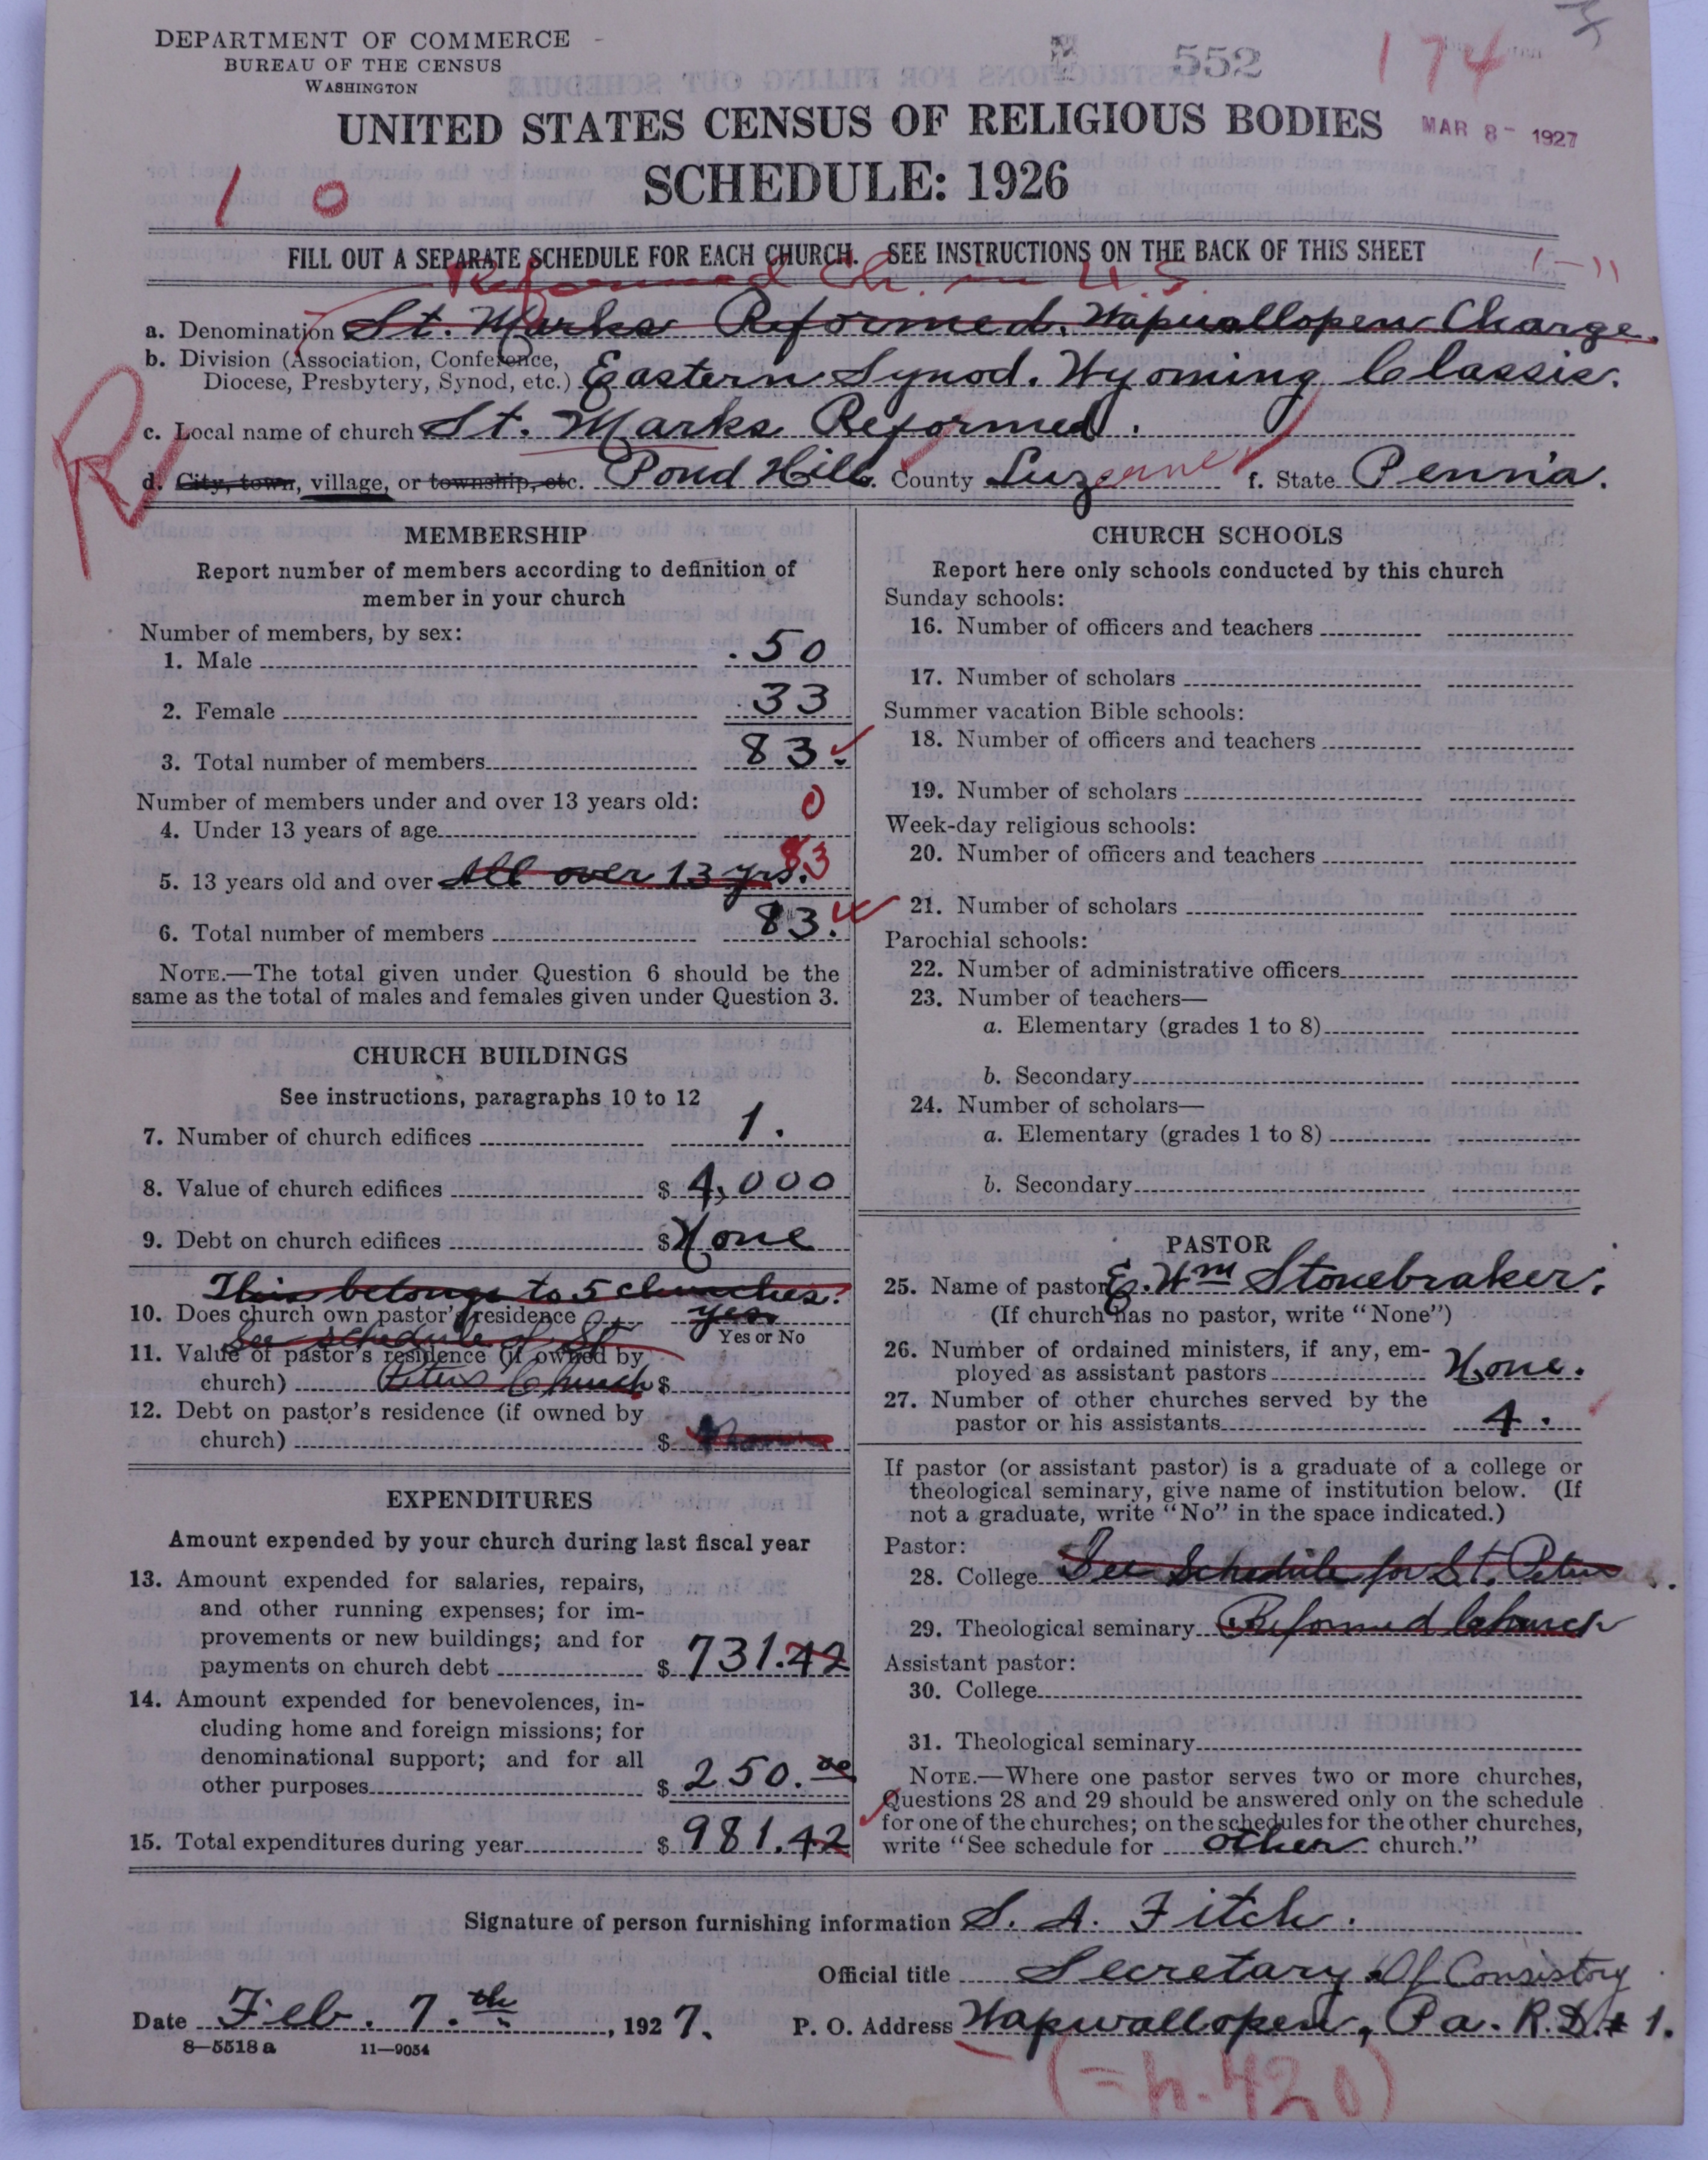 DEPARTMENT OF COMMERCE
BUREAU OF THE CENSUS
WASHINGTON
552
174
UNITED STATES CENSUS OF RELIGIOUS BODIES
MAR 8 - 1927
SCHEDULE: 1926
1 0
FILL OUT A SEPARATE SCHEDULE FOR EACH CHURCH. SEE INSTRUCTIONS ON THE BACK OF THIS SHEET
Reformed Ch. in U.S.
a. Denomination St. Marks Reformed. Wapwallopen Charge.
b. Division (Association, Conference,
Diocese, Presbytery, Synod, etc.) Eastern Synod. Wyoming Classis.
c. Local name of church St. Marks Reformed.
R
d. City, town, village, or township, etc. Pond Hill. County Luzerne f. State Penn'a.
MEMBERSHIP
Report number of members according to definition of
member in your church
Number of members, by sex:
1. Male 50
2. Female 33
3. Total number of members 83.
Number of members under and over 13 years old:
4. Under 13 years of age 0
5. 13 years old and over All over 13 yrs. 83
6. Total number of members 83.
NOTE.—The total given under Question 6 should be the
same as the total of males and females given under Question 3.
CHURCH BUILDINGS
See instructions, paragraphs 10 to 12
7. Number of church edifices 1.
8. Value of church edifices $ 4,000
9. Debt on church edifices $ None
This belongs to 5 churches.
10. Does church own pastor's residence? yes
Yes or No
See schedule of St.
11. Value of pastor's residence (if owned by
church) Peters Church $
12. Debt on pastor's residence (if owned by
church) $
EXPENDITURES
Amount expended by your church during last fiscal year
13. Amount expended for salaries, repairs,
and other running expenses; for im-
provements or new buildings; and for
payments on church debt $ 731.42
14. Amount expended for benevolences, in-
cluding home and foreign missions; for
denominational support; and for all
other purposes $ 250.00
15. Total expenditures during year $ 981.42
CHURCH SCHOOLS
Report here only schools conducted by this church
Sunday schools:
16. Number of officers and teachers
17. Number of scholars
Summer vacation Bible schools:
18. Number of officers and teachers
19. Number of scholars
Week-day religious schools:
20. Number of officers and teachers
21. Number of scholars
Parochial schools:
22. Number of administrative officers
23. Number of teachers—
a. Elementary (grades 1 to 8)
b. Secondary
24. Number of scholars—
a. Elementary (grades 1 to 8)
b. Secondary
PASTOR
25. Name of pastor E. Wm Stonebraker.
(If church has no pastor, write "None")
26. Number of ordained ministers, if any, em-
ployed as assistant pastors None.
27. Number of other churches served by the
pastor or his assistants 4.
If pastor (or assistant pastor) is a graduate of a college or
theological seminary, give name of institution below. (If
not a graduate, write "No" in the space indicated.)
Pastor:
28. College See Schedule for St. Peters
29. Theological seminary Reformed Church
Assistant pastor:
30. College
31. Theological seminary
NOTE.—Where one pastor serves two or more churches,
Questions 28 and 29 should be answered only on the schedule
for one of the churches; on the schedules for the other churches,
write "See schedule for other church."
Signature of person furnishing information S. A. Fitch.
Official title Secretary Of Consistory
Date Feb. 7.th, 1927. P. O. Address Wapwallopen, Pa. R.D. # 1.
8—5518 a 11—9054
(= h. 420)